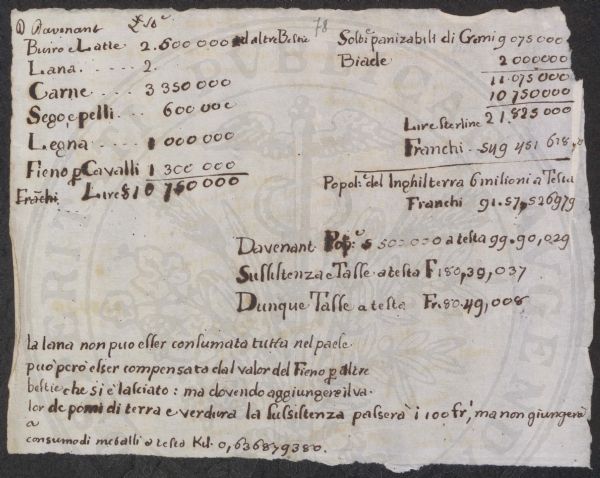 Davenant £ St.
Butiro e Latte 2.500 000 ed altre Bestie
Lana ..... 2.
Carne ---- 3 350 000
Sego, e pelli . 600 000
Legna ---- 1 000 000
Fieno p Cavalli 1 300 000
Franchi Lire S 10 750 000
78
panizabili di Grani 9 075 000
Biade 2 000 000
11 075 000
10 750 000
Lire Sterline 21.825 000
Franchi - 549 451 678,
Popol: del Inghilterra 6 milioni a Testa
Franchi 91.57,526979
Davenant Pop: 5 500 000 a testa 99.90,029
Sussistenza e Tasse a testa F 180,39,037
Dunque Tasse a testa Fr. 80.49,008
la lana non puo esser consumata tutta nel paese
può però esser compensata dal valor del Fieno p altre
bestie che si è lasciato: ma dovendo aggiungere il va-
lor de pomi di terra e verdura la sussistenza passerà i 100 fr, ma non giungerà
a
consumo di metalli a testa Kil. 0,636879380.